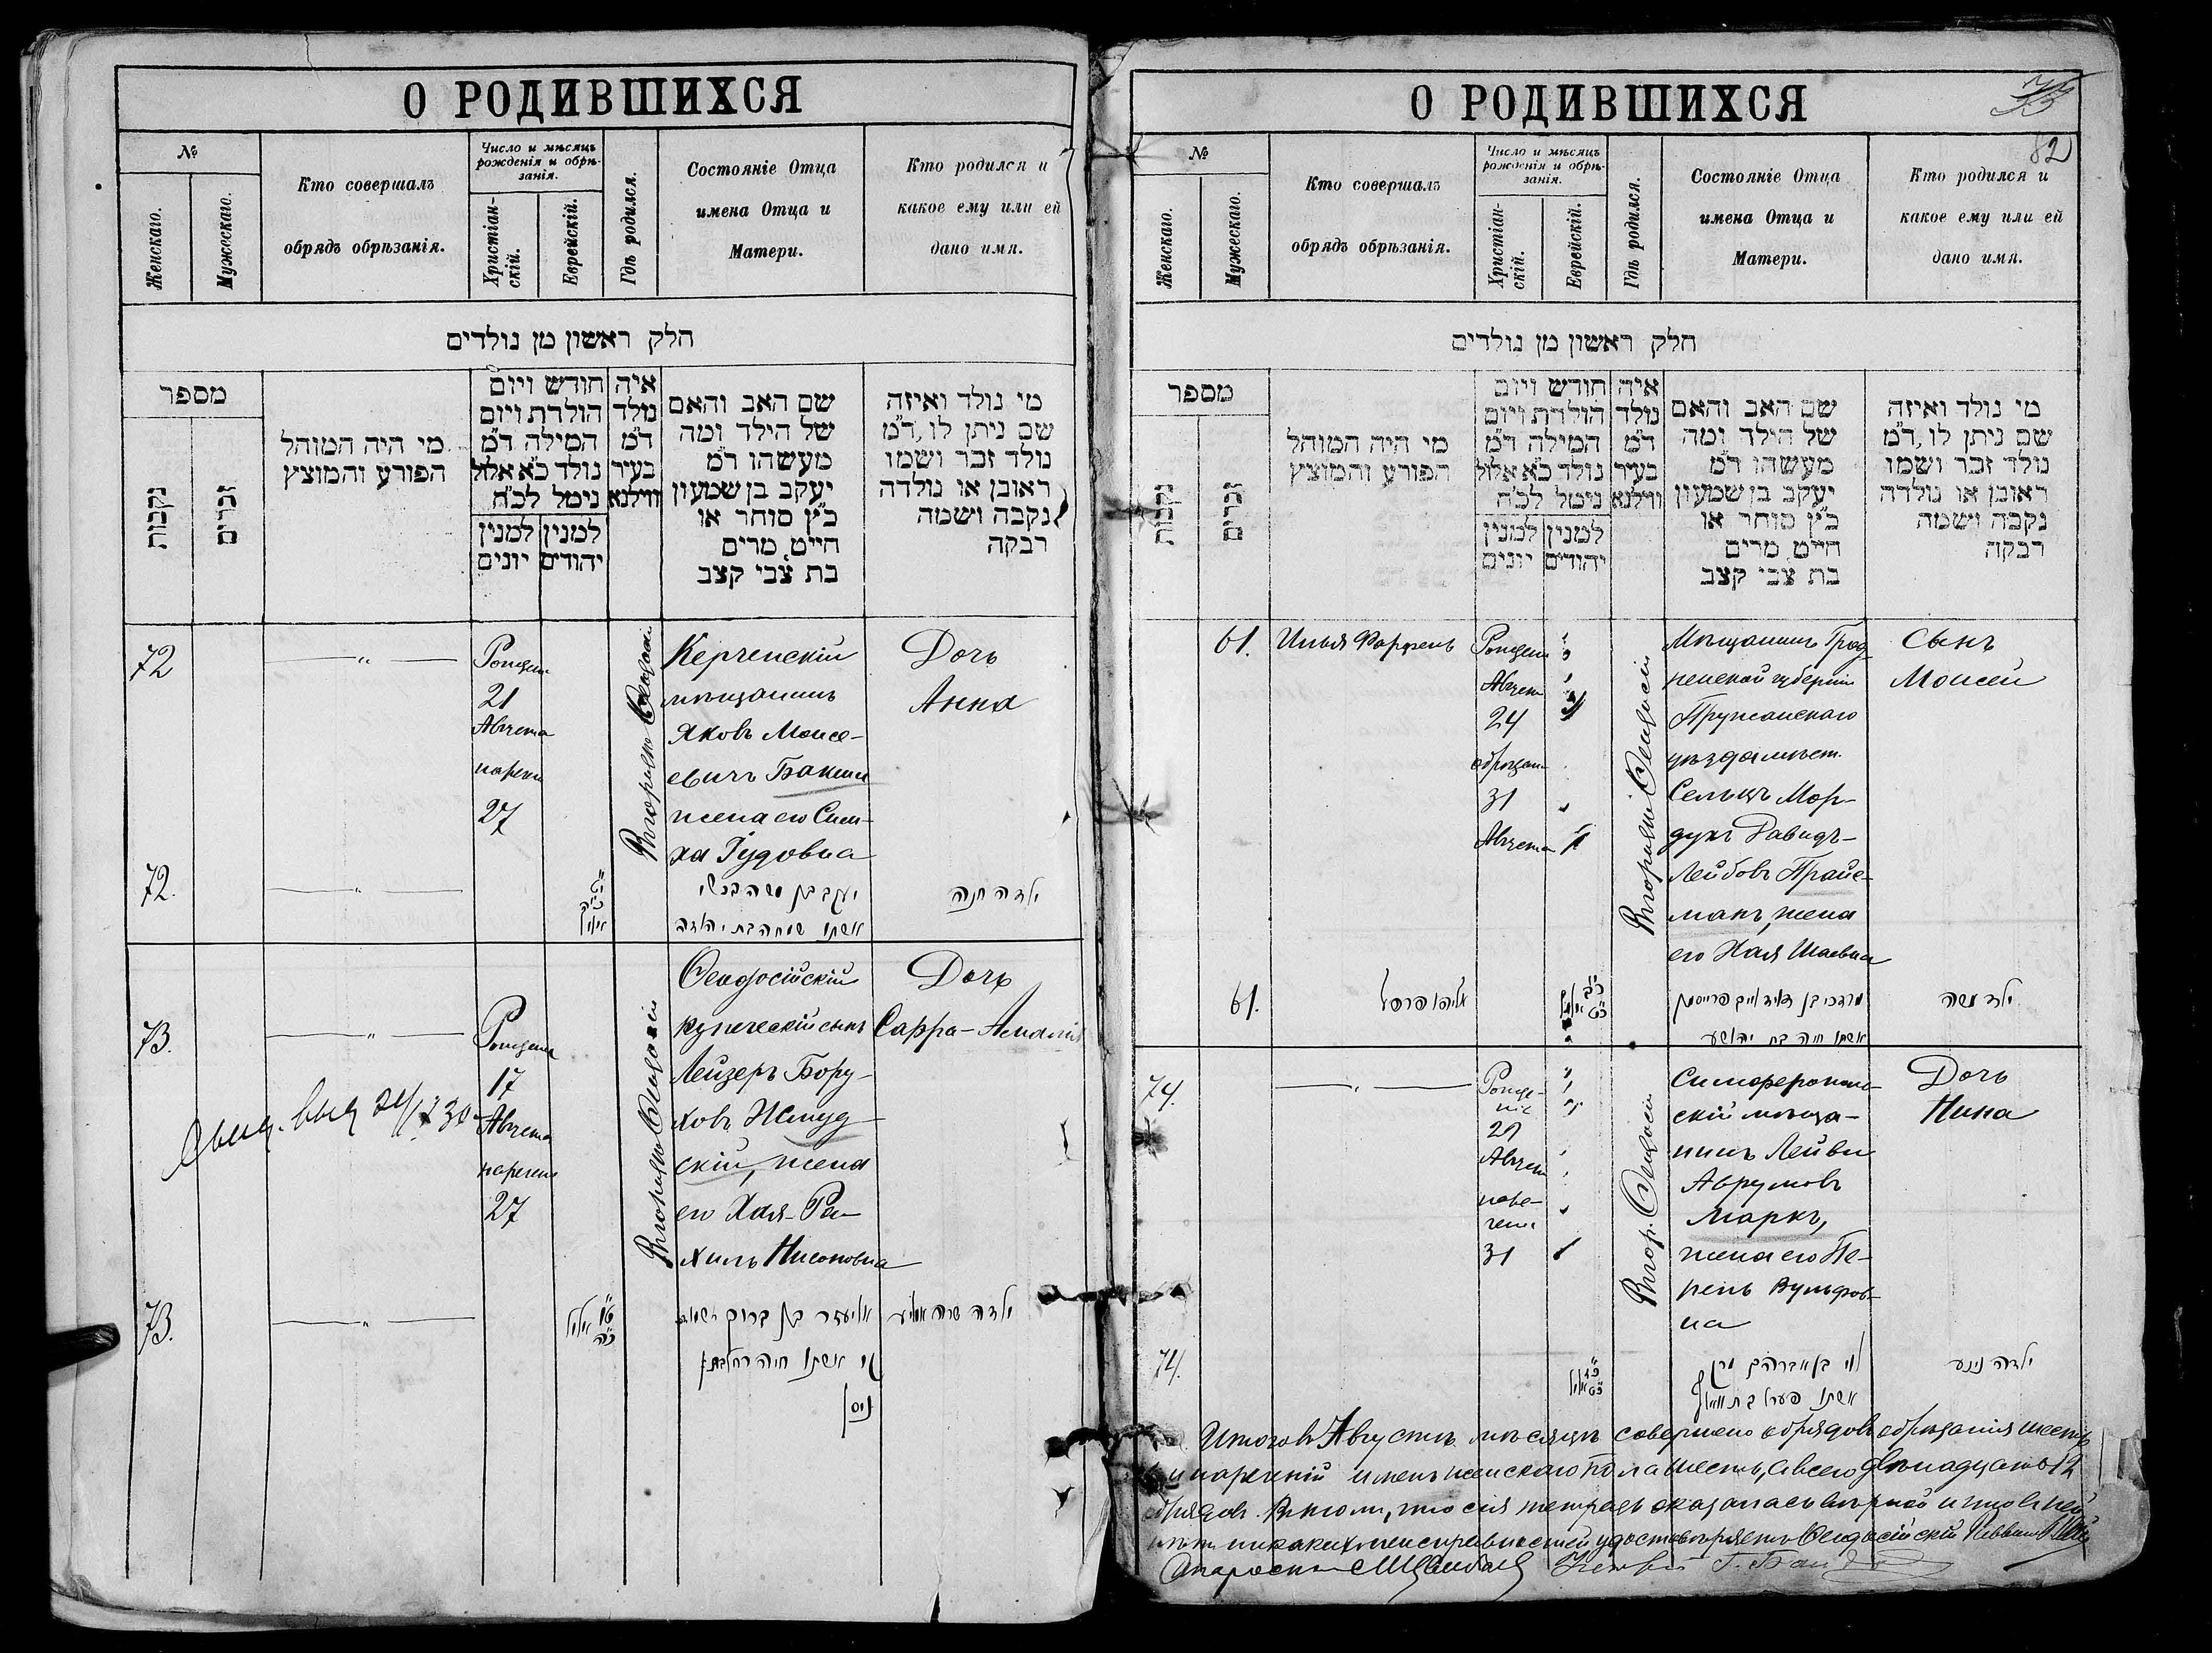 О РОДИВШИХСЯ
№
Женскаго.
Мужескаго.
Кто совершалъ
обрядъ обрѣзанія.
Число и мѣсяцъ
рожденія и обрѣ-
занія.
Христіан-
скій.
Еврейскій.
Гдѣ родился.
Состояніе Отца
имена Отца и
Матери.
Кто родился и
какое ему или ей
дано имя.
חלק ראשון מן נולדים
מספר
נקבות
זכרים
מי היה המוהל
הפורע והמוצץ
חודש ויום
הולדת ויום
המילה ד״מ
נולד כ״א אלול
נימל לכ״ח
למנין למנין
יהודים יונים
איה
נולד
ד״מ
בעיר
ווילנא
שם האב והאם
של הילד ומה
מעשהו ד״מ
יעקב בן שמעון
כ״ץ סוחר או
חייט מרים
בת צבי קצב
מי נולד ואיזה
שם ניתן לו ד״מ
נולד זכר ושמו
ראובן או נולדה
נקבה ושמה
רבקה
72
21
Августа
27
Керченскій
мѣщанинъ
Яковъ Моисе-
евичъ Бакши
жена его Сим-
ха Іудовна
Дочь
Анна
72.
אשתו שמחה בת יהודה
ילדה חנה
73.
17
Августа
27
Ѳеодосійскій
купеческій сынъ
Лейзеръ Бору-
ховъ Жмуд-
скій, жена
его Хая-Ра-
хиль Нисоновна
Дочь
Сарра-Амалія
73.
אליעזר בן ברוך
אשתו חיה רחל בת
ניסן
ילדה שרה
О РОДИВШИХСЯ
82
№
Женскаго.
Мужескаго.
Кто совершалъ
обрядъ обрѣзанія.
Число и мѣсяцъ
рожденія и обрѣ-
занія.
Христіан-
скій.
Еврейскій.
Гдѣ родился.
Состояніе Отца
имена Отца и
Матери.
Кто родился и
какое ему или ей
дано имя.
חלק ראשון מן נולדים
מספר
נקבות
זכרים
מי היה המוהל
הפורע והמוצץ
חודש ויום
הולדת ויום
המילה ד״מ
נולד כ״א אלול
נימל לכ״ח
למנין למנין
יהודים יונים
איה
נולד
ד״מ
בעיר
ווילנא
שם האב והאם
של הילד ומה
מעשהו ד״מ
יעקב בן שמעון
כ״ץ סוחר או
חייט מרים
בת צבי קצב
מי נולד ואיזה
שם ניתן לו ד״מ
נולד זכר ושמו
ראובן או נולדה
נקבה ושמה
רבקה
61.
Илья Фарфель
24
31
Августа
Мѣщанинъ Грод-
ненской губерніи
Пружанскаго
уѣзда мѣст.
Сельцъ Мор-
духъ Давидъ-
Лейбовъ Прайс-
манъ, жена
его Хая Шаевна
Сынъ
Моисей
61.
מרדכי בן דוד לייב פרייסמן
אשתו חיה בת יהושע
ילד משה
74.
Рожде-
ніе
29
наре-
чена
31
Симферополь-
скій мѣща-
нинъ Лейви
Аврумовъ
Маркъ,
жена его Пе-
рель Вульфов-
на
Дочь
Нина
74.
לוי בן אברהם
ילדה נינע
Итого въ Августѣ мѣсяцѣ совершено обрядовъ обрѣзанія шесть
и нареченій именъ женскаго пола шесть, а всего двѣнадцать 12
обрядовъ. что сія тетрадь оказалась вѣрной и что въ ней
нѣтъ никакихъ неисправностей удостовѣряетъ Ѳеодосійскій Раввинъ